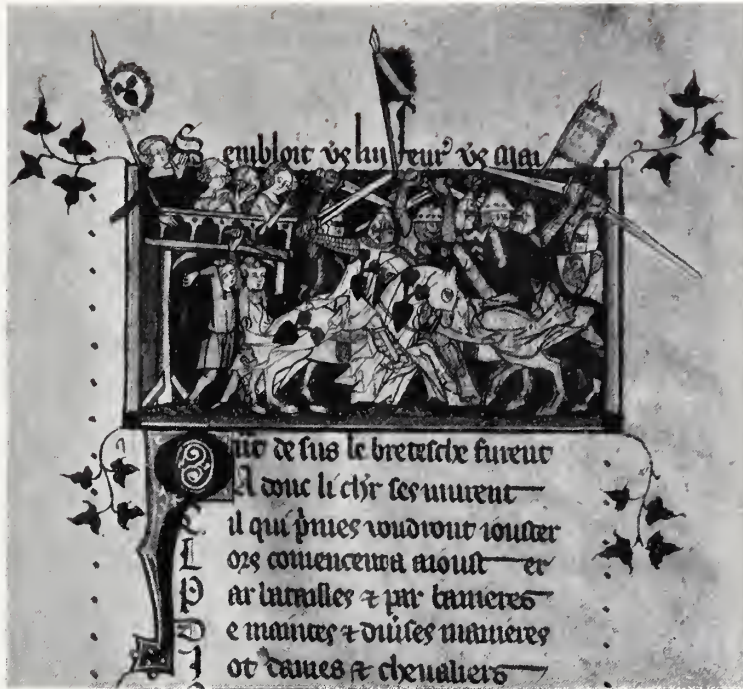 S embloit vs lui seur vs mai
Qāt de sus le bretesche furent
A donc li chr ses murent
C il qui pmies voudront iouster
L ors comencent a aioust er
P ar batailles & par banieres
D e maintes & diuises manieres
I ot dames & cheualiers